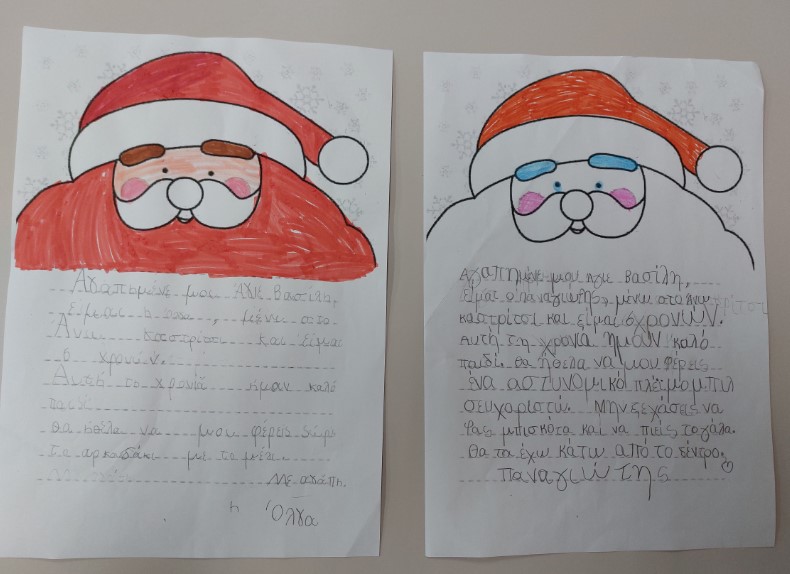 Αγαπημένε μου Άγιε Βασίλη,
Είμαι η , μένω στο
Άνω Καστρίτσι και είμαι
6 χρονών.
Αυτή τη χρονιά ήμουν καλό
παιδί
θα ήθελα να μου φέρεις δώρο
το αρκουδάκι με το μέλι.
Με αγάπη.
η Όλγα
Αγαπημένε μου άγιε Βασίλη,
Είμαι ο Παναγιώτης, μένω στο Άνω
καστρίτσι και είμαι 6 χρονών.
Αυτή τη χρονιά ήμουν καλό
παιδί. θα ήθελα να μου φέρεις
ένα αστυνομικό πλέιμομπιλ
σευχαριστώ. Μην ξεχάσεις να
φας μπισκότα και να πιείς το γάλα.
Θα τα έχω κάτω από το δέντρο.
Παναγιώτης